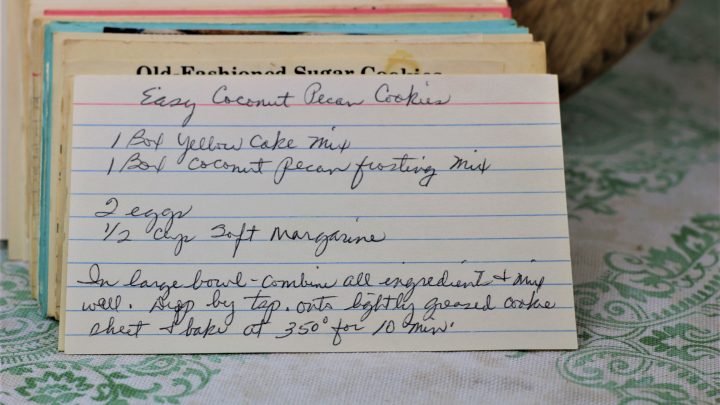 Old-Fashioned Sugar Cookies
Easy Coconut Pecan Cookies
1 Box yellow cake mix
1 Box coconut pecan frosting mix
2 eggs
1/2 cup Soft Margarine
In large bowl - combine all ingredient & mix
well. Drop by tsp. onto lightly greased cookie
sheet & bake at 350° for 10 min.